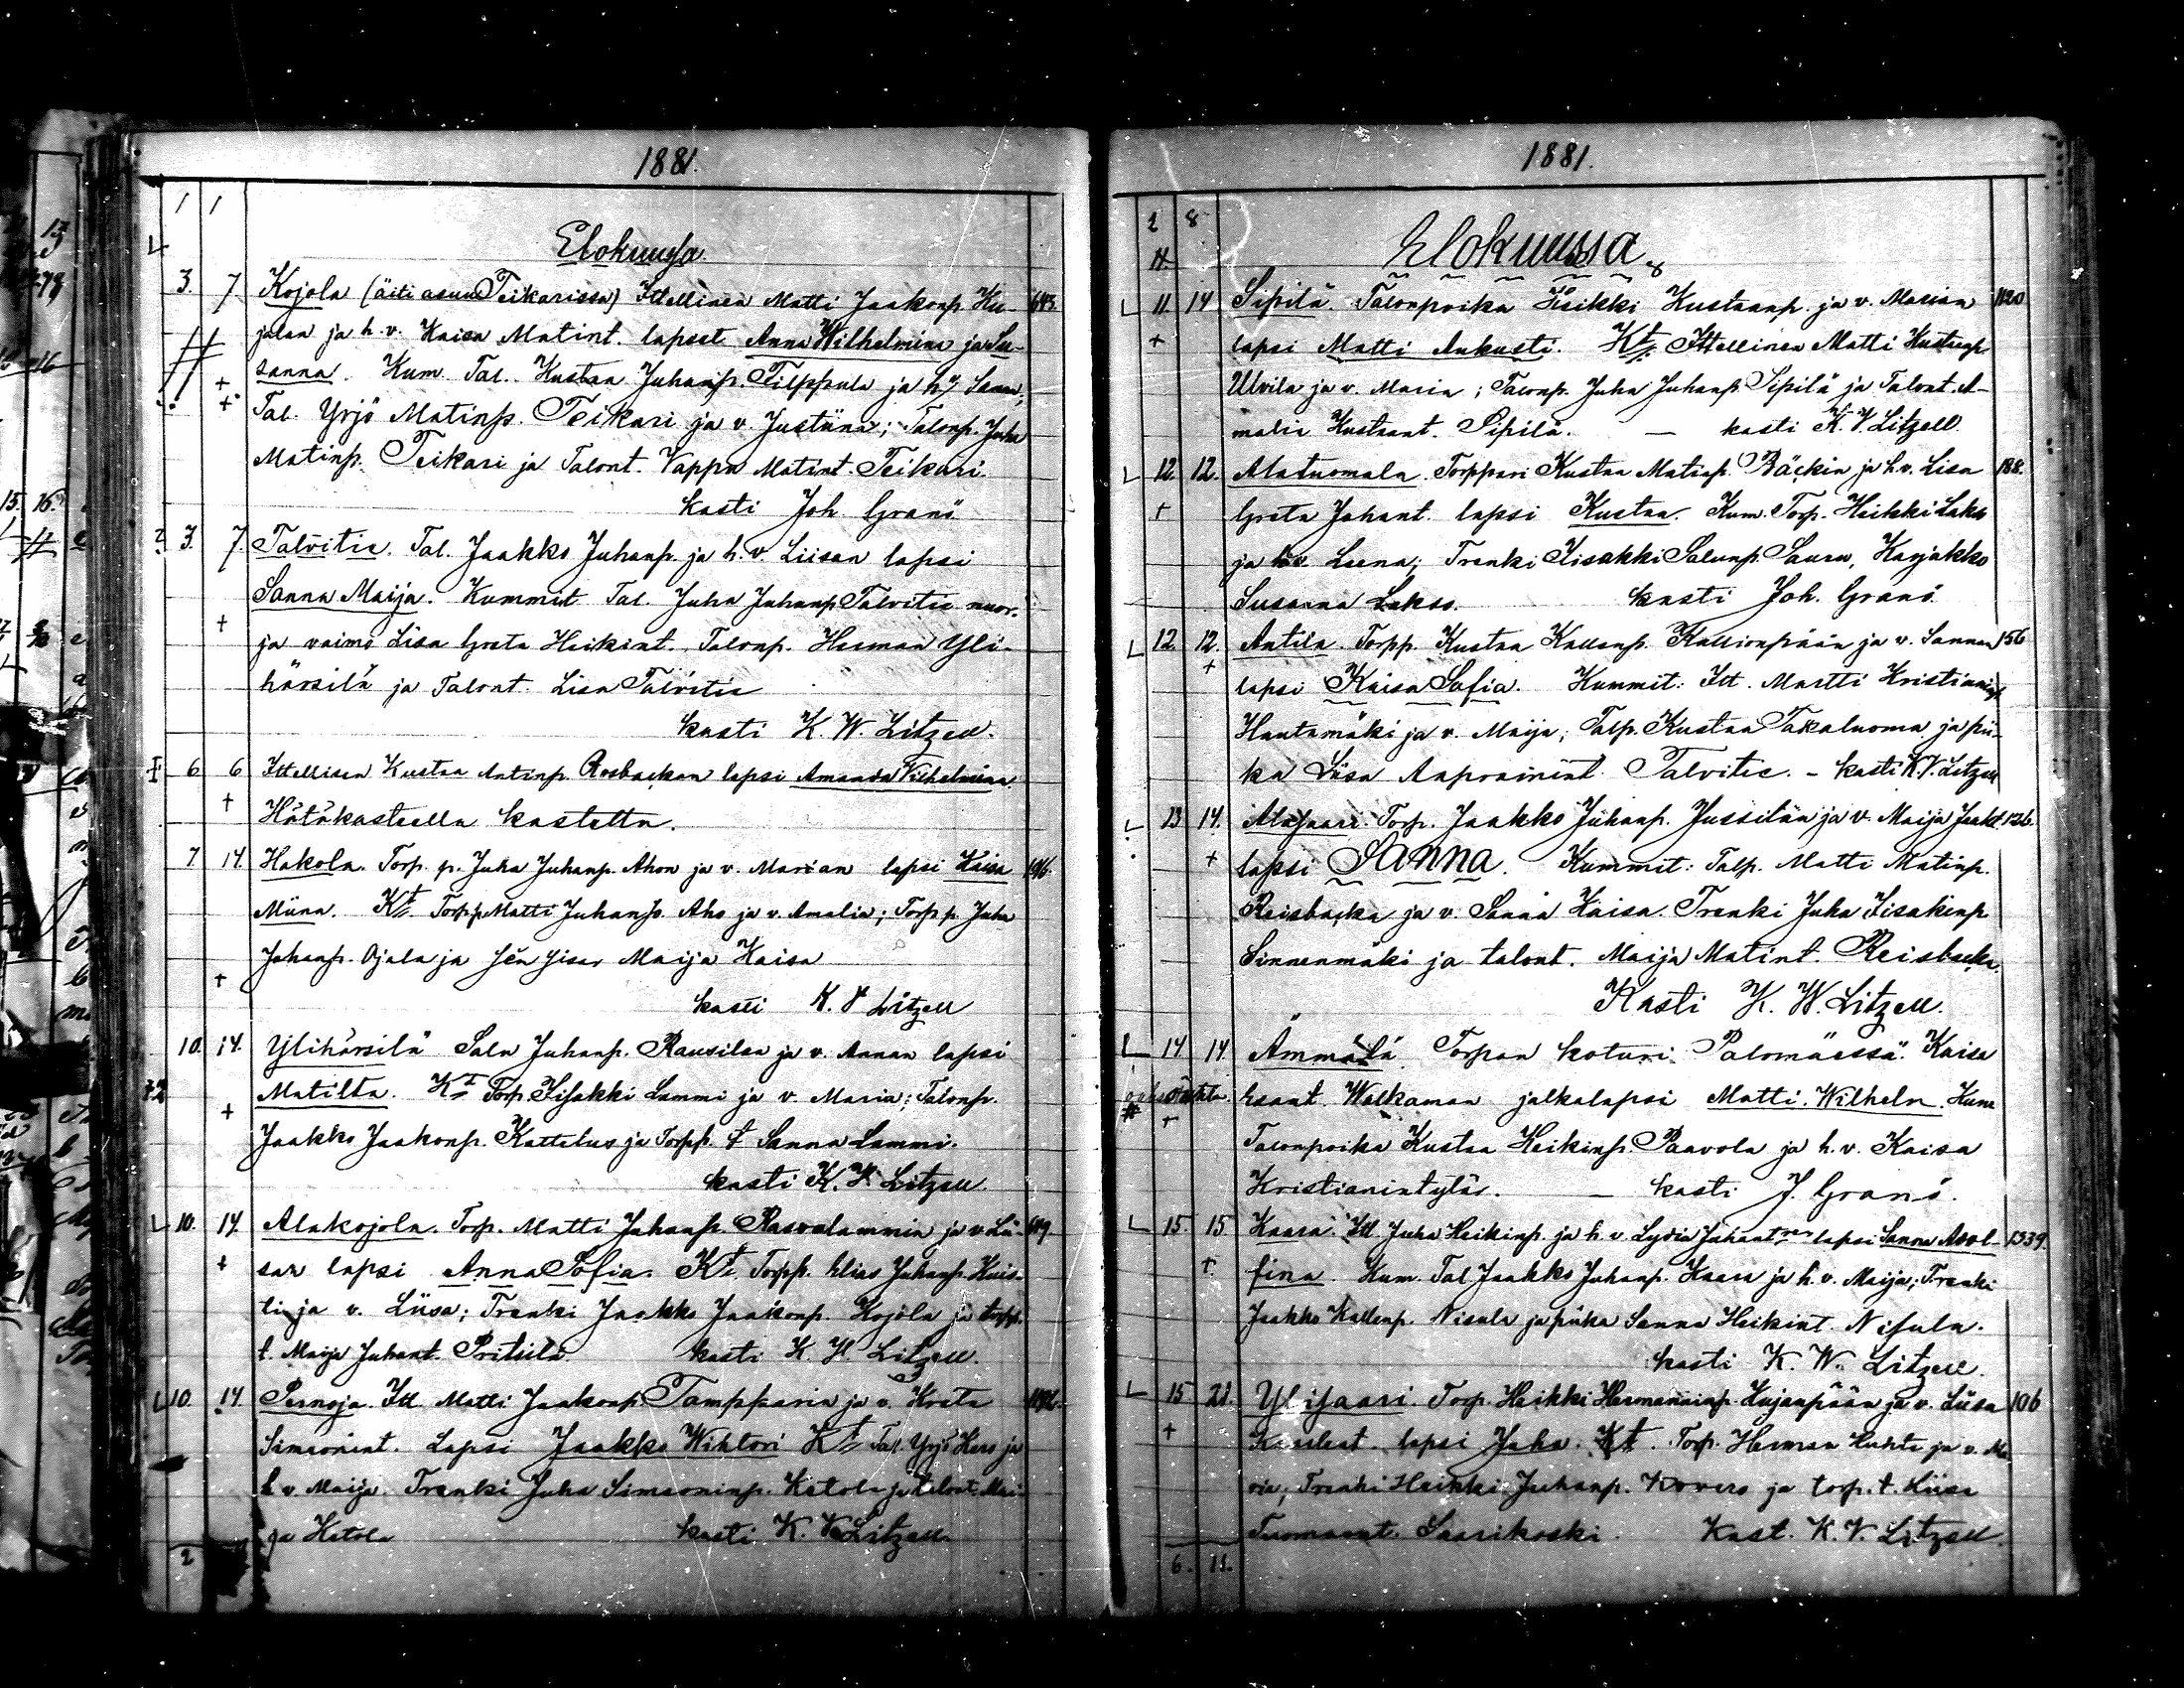 1881.
1 1
Elokuussa
3. 7 Kojola (äiti asuu Teikarissa) Ittellinen Matti Jaakonp. Ku- 643
jalan ja h. v. Kaisa Matint. lapset Anna Wilhelmina ja Su-
sanna. Kum. Tal. Kustaa Juhanp. Filppula ja Sanna,
Tal. Yrjö Matinp. Teikari ja v. Justiina; Talonp. Juha
Matinp. Teikari ja Talont. Vappu Matint. Teikari.
kasti Joh. Granö
3. 7. Talvitie. Tal. Jaakko Juhanp. ja h. v. Liisan lapsi
Sanna Maija. Kummit Tal. Juha Juhanp. Talvitie nuor.
ja vaimo Lisa Greta Heikint. Talonp. Herman Yli-
härsilä ja Talont. Lisa Talvitie
kasti K. W. Litzell.
6 6 Ittellisen Kustaa Antinp. Rosbackan lapsi Amanda Vilhelmina.
Hätäkasteella kastettu.
7 14. Hakola. Torp. p. Juha Juhanp. Ahon ja v. Marian lapsi Kaisa
Miina. Kt. Torpp. Matti Juhanp. Aho ja v. Amalia; Torp. p. Juha
Juhanp. Ojala ja sen sisar Maija Kaisa
kasti K. V. Litzell
10. 14. Ylihärsilä Salu Juhanp. Rausilan ja v. Annan lapsi
Matilta. Kt. Torp. Iisakki Lammi ja v. Maria; Talonp.
Jaakko Jaakonp. Kattelus ja Torpp. t Sanna Lammi.
kasti K. V. Litzell.
10. 14. Alakojola. Torp. Matti Juhanp. Rasvalammin ja v. Lii-
san lapsi Anna Sofia. Kt. Torpp. Elias Juhanp. Huis-
ti ja v. Liisa; Trenki Jaakko Jaakonp. Kojola ja torpp.
t. Maija Juhant. Pritsilä. kasti K. V. Litzell.
10. 14. Pernoja. Itl. Matti Jaakonp. Tampparin ja v. Kreta
Simeonint. Lapsi Jaakko Wihtori Kt. Tal. Yrjö Hero ja
h. v. Maija. Trenki Juha Simeoninp. Ketola ja talont. Mai-
ja Ketola kasti K. V. Litzell.
2
1881.
2 8
Elokuussa
11. 14 Sipilä. Talonpoika Heikki Kustaanp. ja v. Marian 1120
lapsi Matti Aukusti. Kt. Ittellinen Matti Kustaanp.
Ulvila ja v. Maria; Talonp. Juha Juhanp. Sipilä ja Talont. A-
malia Kustaant. Sipilä. — kasti K. V. Litzell.
12. 12. Alatuomala. Torppari Kustaa Matinp. Bäckin ja h. v. Lisa 188.
Greta Johant. lapsi Kustaa. Kum. Torp. Heikki Lakso
ja h. v. Leena; Trenki Iisakki Salunp. Sauru, Karjakko
Susanna Lakso. kasti Joh. Granö.
12. 12. Antila. Torpp. Kustaa Kallenp. Kallionpään ja v. Sannan 156
lapsi Kaisa Sofia. Kummit: Itt. Martti Kristianinp.
Hautamäki ja v. Maija; Talp. Kustaa Takaluoma ja pii-
ka Liisa Aaprainint. Talvitie. – kasti K. V. Litzell
13 14. Alasaari. Torp. Jaakko Juhanp. Jussilan ja v. Maija Jaakt. 126.
lapsi Sanna. Kummit: Talp. Matti Matinp.
Reisbacka ja v. Sanna Kaisa. Trenki Juha Iisakinp.
Sinnenmäki ja talont. Maija Matint. Reisbacka.
Kasti K. W. Litzell.
14 14. Ämmälä. Torpan koturi Palomäessä Kaisa
Esaant. Walkaman jalkalapsi Matti Wilhelm. Kum
Talonpoika Kustaa Heikinp. Paavola ja h. v. Kaisa
Kristianintytär. — kasti J. Granö.
15. 15 Kaara. Itl. Juha Heikinp. ja h. v. Lydia Juhant. lapsi Sanna Adol- 1339.
fina. Kum. Tal. Jaakko Juhanp. Kaara ja h. v. Maija; Trenki
Jaakko Kallenp. Nisula ja piika Sanna Heikint. Nisula.
kasti K. W. Litzell.
15 21. Ylisaari. Torp. Heikki Hermanninp. Kujanpään ja v. Liisa 106
lapsi Juha. Kt. Torp. Herman Huhta ja v. Ma-
ria; Trenki Heikki Juhanp. Kovero ja torp. t. Liisa
Tuomaant. Saarikoski. Kast. K. V. Litzell.
6. 11.